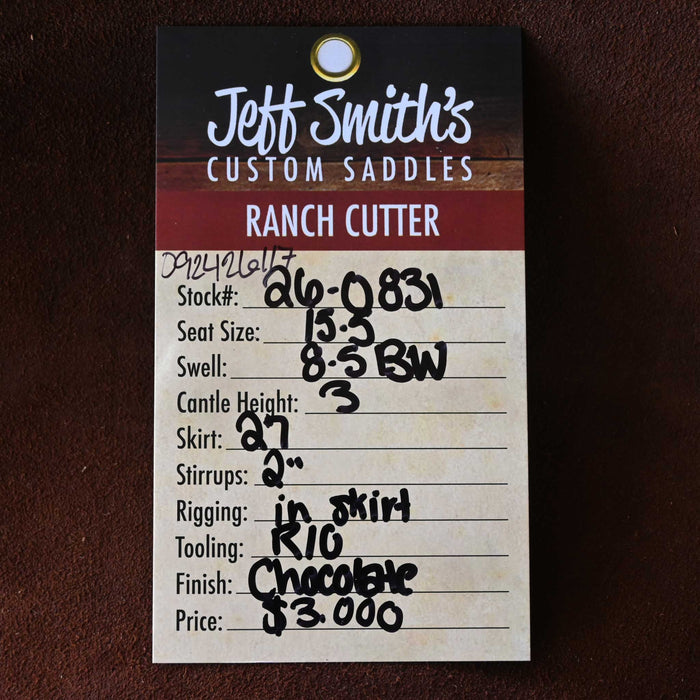 Jeff Smith's
CUSTOM SADDLES
RANCH CUTTER
Stock#: 26-0831
Seat Size: 15.5
Swell: 8.5 BW
Cantle Height: 3
Skirt: 27
Stirrups: 2"
Rigging: in skirt
Tooling: R10
Finish: Chocolate
Price: $3.000